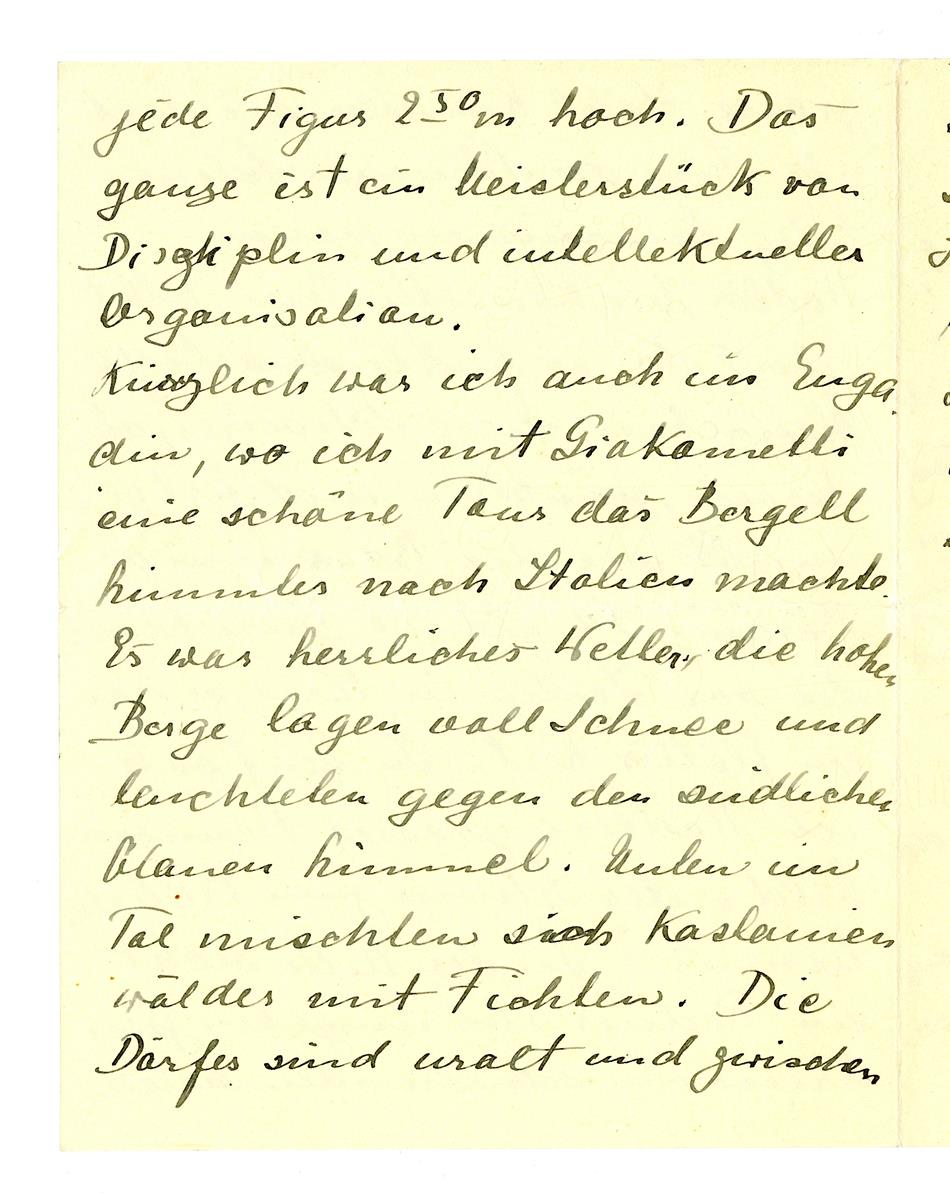 jede Figur 2.50 m hoch. Das
ganze ist ein Meisterstück von
Disziplin und intellektueller
Organisation.
Kürzlich war ich auch im Enga
din, wo ich mit Giakometti
eine schöne Tour das Bergell
hinunter nach Italien machte.
Es war herrliches Wetter, die hohen
Berge lagen voll Schnee und
leuchteten gegen den südlichen
blauen Himmel. Unten im
Tal mischten sich Kastanien
wälder mit Fichten. Die
Dörfer sind uralt und zwischen